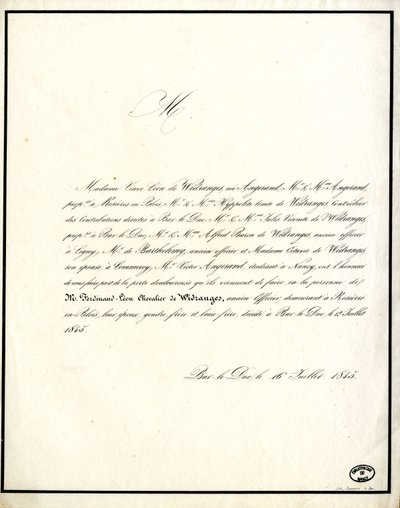 M
Madame Veuve Léon de Widranges, née Angerand, Mr. & Mme. Angerand,
propre. à Rosières en Blois, Mr. & Mme. Hyppolite Comte de Widranges, Contrôleur
des Contributions directes à Bar le Duc, Mr. & Mme. Jules Vicomte de Widranges,
propre. à Bar le Duc, Mr. & Mme. Alfred Baron de Widranges, ancien officier
à Ligny, Mr. de Barthélemy, ancien officier et Madame Octavie de Widranges,
son épouse à Commercy, Mr. Victor Angerand, étudiant à Nancy, ont l'honneur
de vous faire part de la perte douloureuse qu'ils viennent de faire en la personne de
M. Ferdinand-Léon Chevalier de Widranges, ancien Officier, demeurant à Rosières-
en-Blois, leur époux, gendre, frère et beau-frère décédé à Bar-le-Duc, le 12 Juillet
1845.
Bar-le-Duc, le 16 Juillet 1845.
DE
NANCY